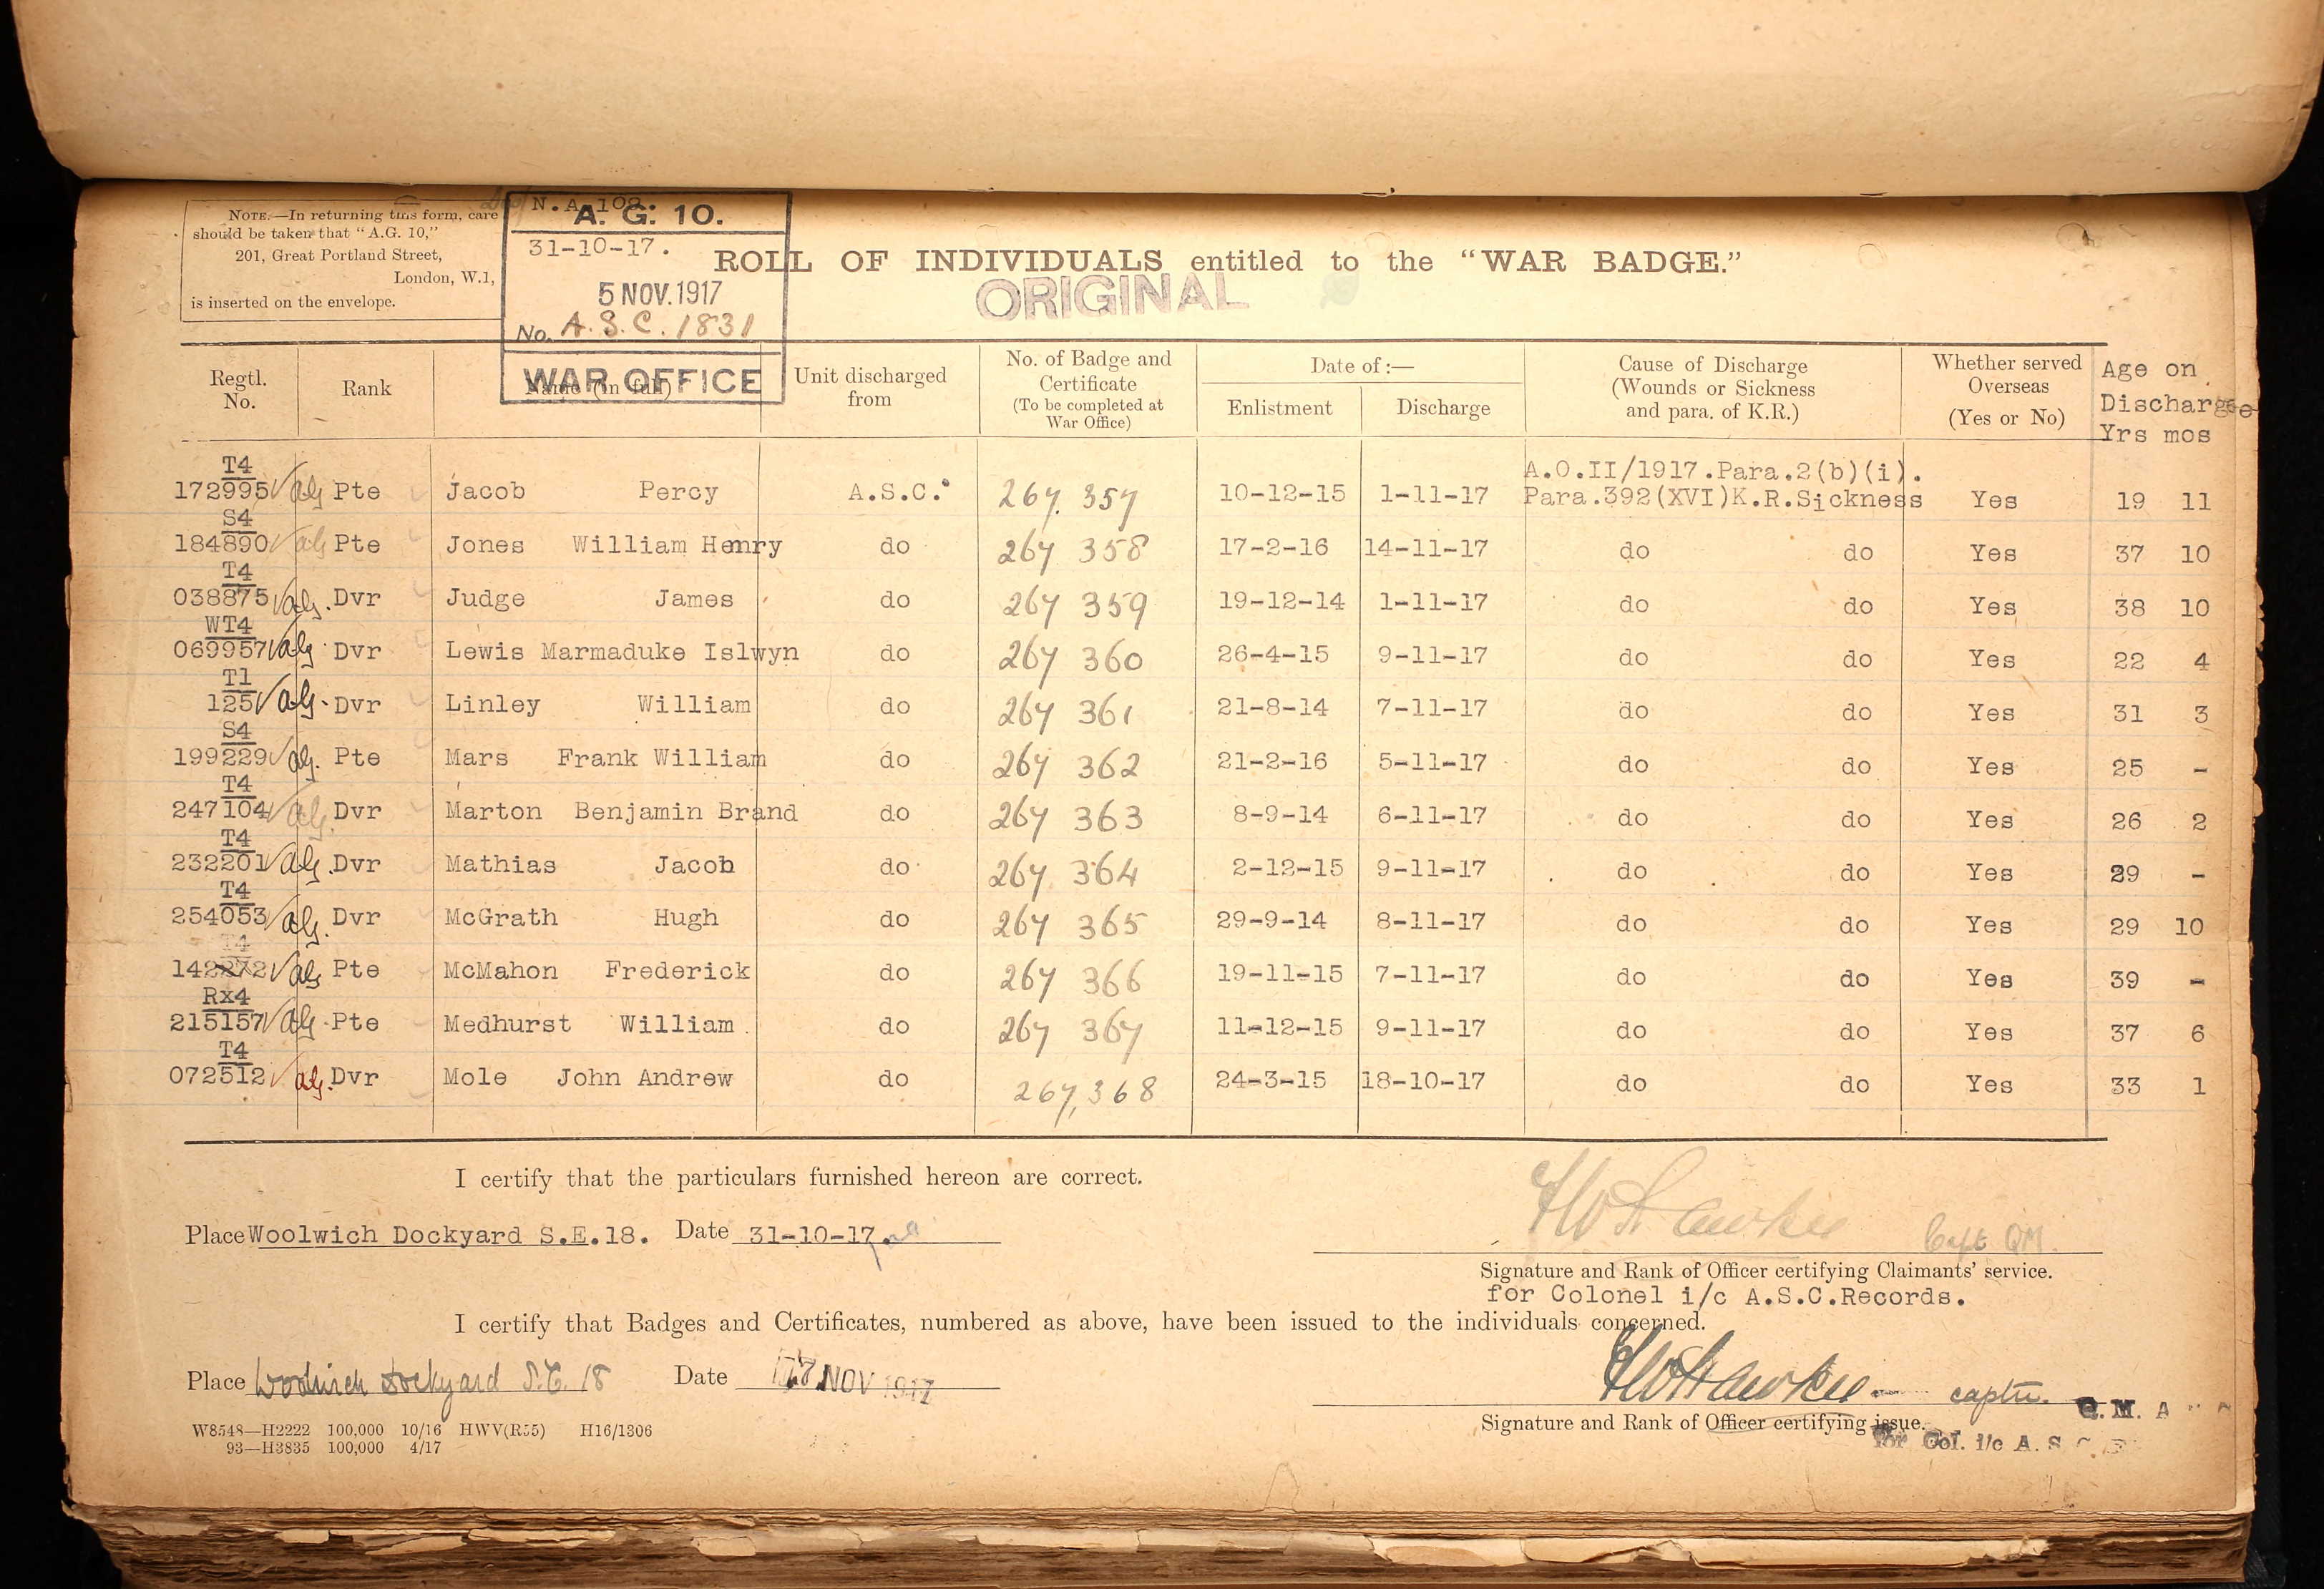 NOTE.—In returning this form, care
should be taken that "A.G. 10,"
201, Great Portland Street,
London, W.1,
is inserted on the envelope.
N.A.108.
A. G. 10.
31-10-17.
5 NOV. 1917
No. A.S.C. 1831
WAR OFFICE
ROLL OF INDIVIDUALS entitled to the "WAR BADGE."
ORIGINAL
Regtl. No. Rank Name (in full) Unit discharged from No. of Badge and Certificate (To be completed at War Office) Date of:— Enlistment Discharge Cause of Discharge (Wounds or Sickness and para. of K.R.) Whether served Overseas (Yes or No) Age on Discharge Yrs mos
T4 A.O.II/1917.Para.2(b)(i).
172995 Pte Jacob Percy A.S.C. 267.357 10-12-15 1-11-17 Para.392(XVI)K.R.Sickness Yes 19 11
S4
184890 Pte Jones William Henry do 267 358 17-2-16 14-11-17 do do Yes 37 10
T4
038875 Dvr Judge James do 267 359 19-12-14 1-11-17 do do Yes 38 10
WT4
069957 Dvr Lewis Marmaduke Islwyn do 267 360 26-4-15 9-11-17 do do Yes 22 4
T1
125 Dvr Linley William do 267 361 21-8-14 7-11-17 do do Yes 31 3
S4
199229 Pte Mars Frank William do 267 362 21-2-16 5-11-17 do do Yes 25 -
T4
247104 Dvr Marton Benjamin Brand do 267 363 8-9-14 6-11-17 do do Yes 26 2
T4
232201 Dvr Mathias Jacob do 267 364 2-12-15 9-11-17 do do Yes 29 -
T4
254053 Dvr McGrath Hugh do 267 365 29-9-14 8-11-17 do do Yes 29 10
T4
142272 Pte McMahon Frederick do 267 366 19-11-15 7-11-17 do do Yes 39 -
Rx4
215157 Pte Medhurst William do 267 367 11-12-15 9-11-17 do do Yes 37 6
T4
072512 Dvr Mole John Andrew do 267,368 24-3-15 18-10-17 do do Yes 33 1
I certify that the particulars furnished hereon are correct.
Place Woolwich Dockyard S.E.18. Date 31-10-17. Capt QM
Signature and Rank of Officer certifying Claimants' service.
for Colonel i/c A.S.C.Records.
I certify that Badges and Certificates, numbered as above, have been issued to the individuals concerned.
Place Woolwich Dockyard S.E. 18 Date NOV 1917 captn. Q.M.
Signature and Rank of Officer certifying issue.
for Col. i/c A. S
W8548—H2222 100,000 10/16 HWV(R55) H16/1306
93—H3835 100,000 4/17